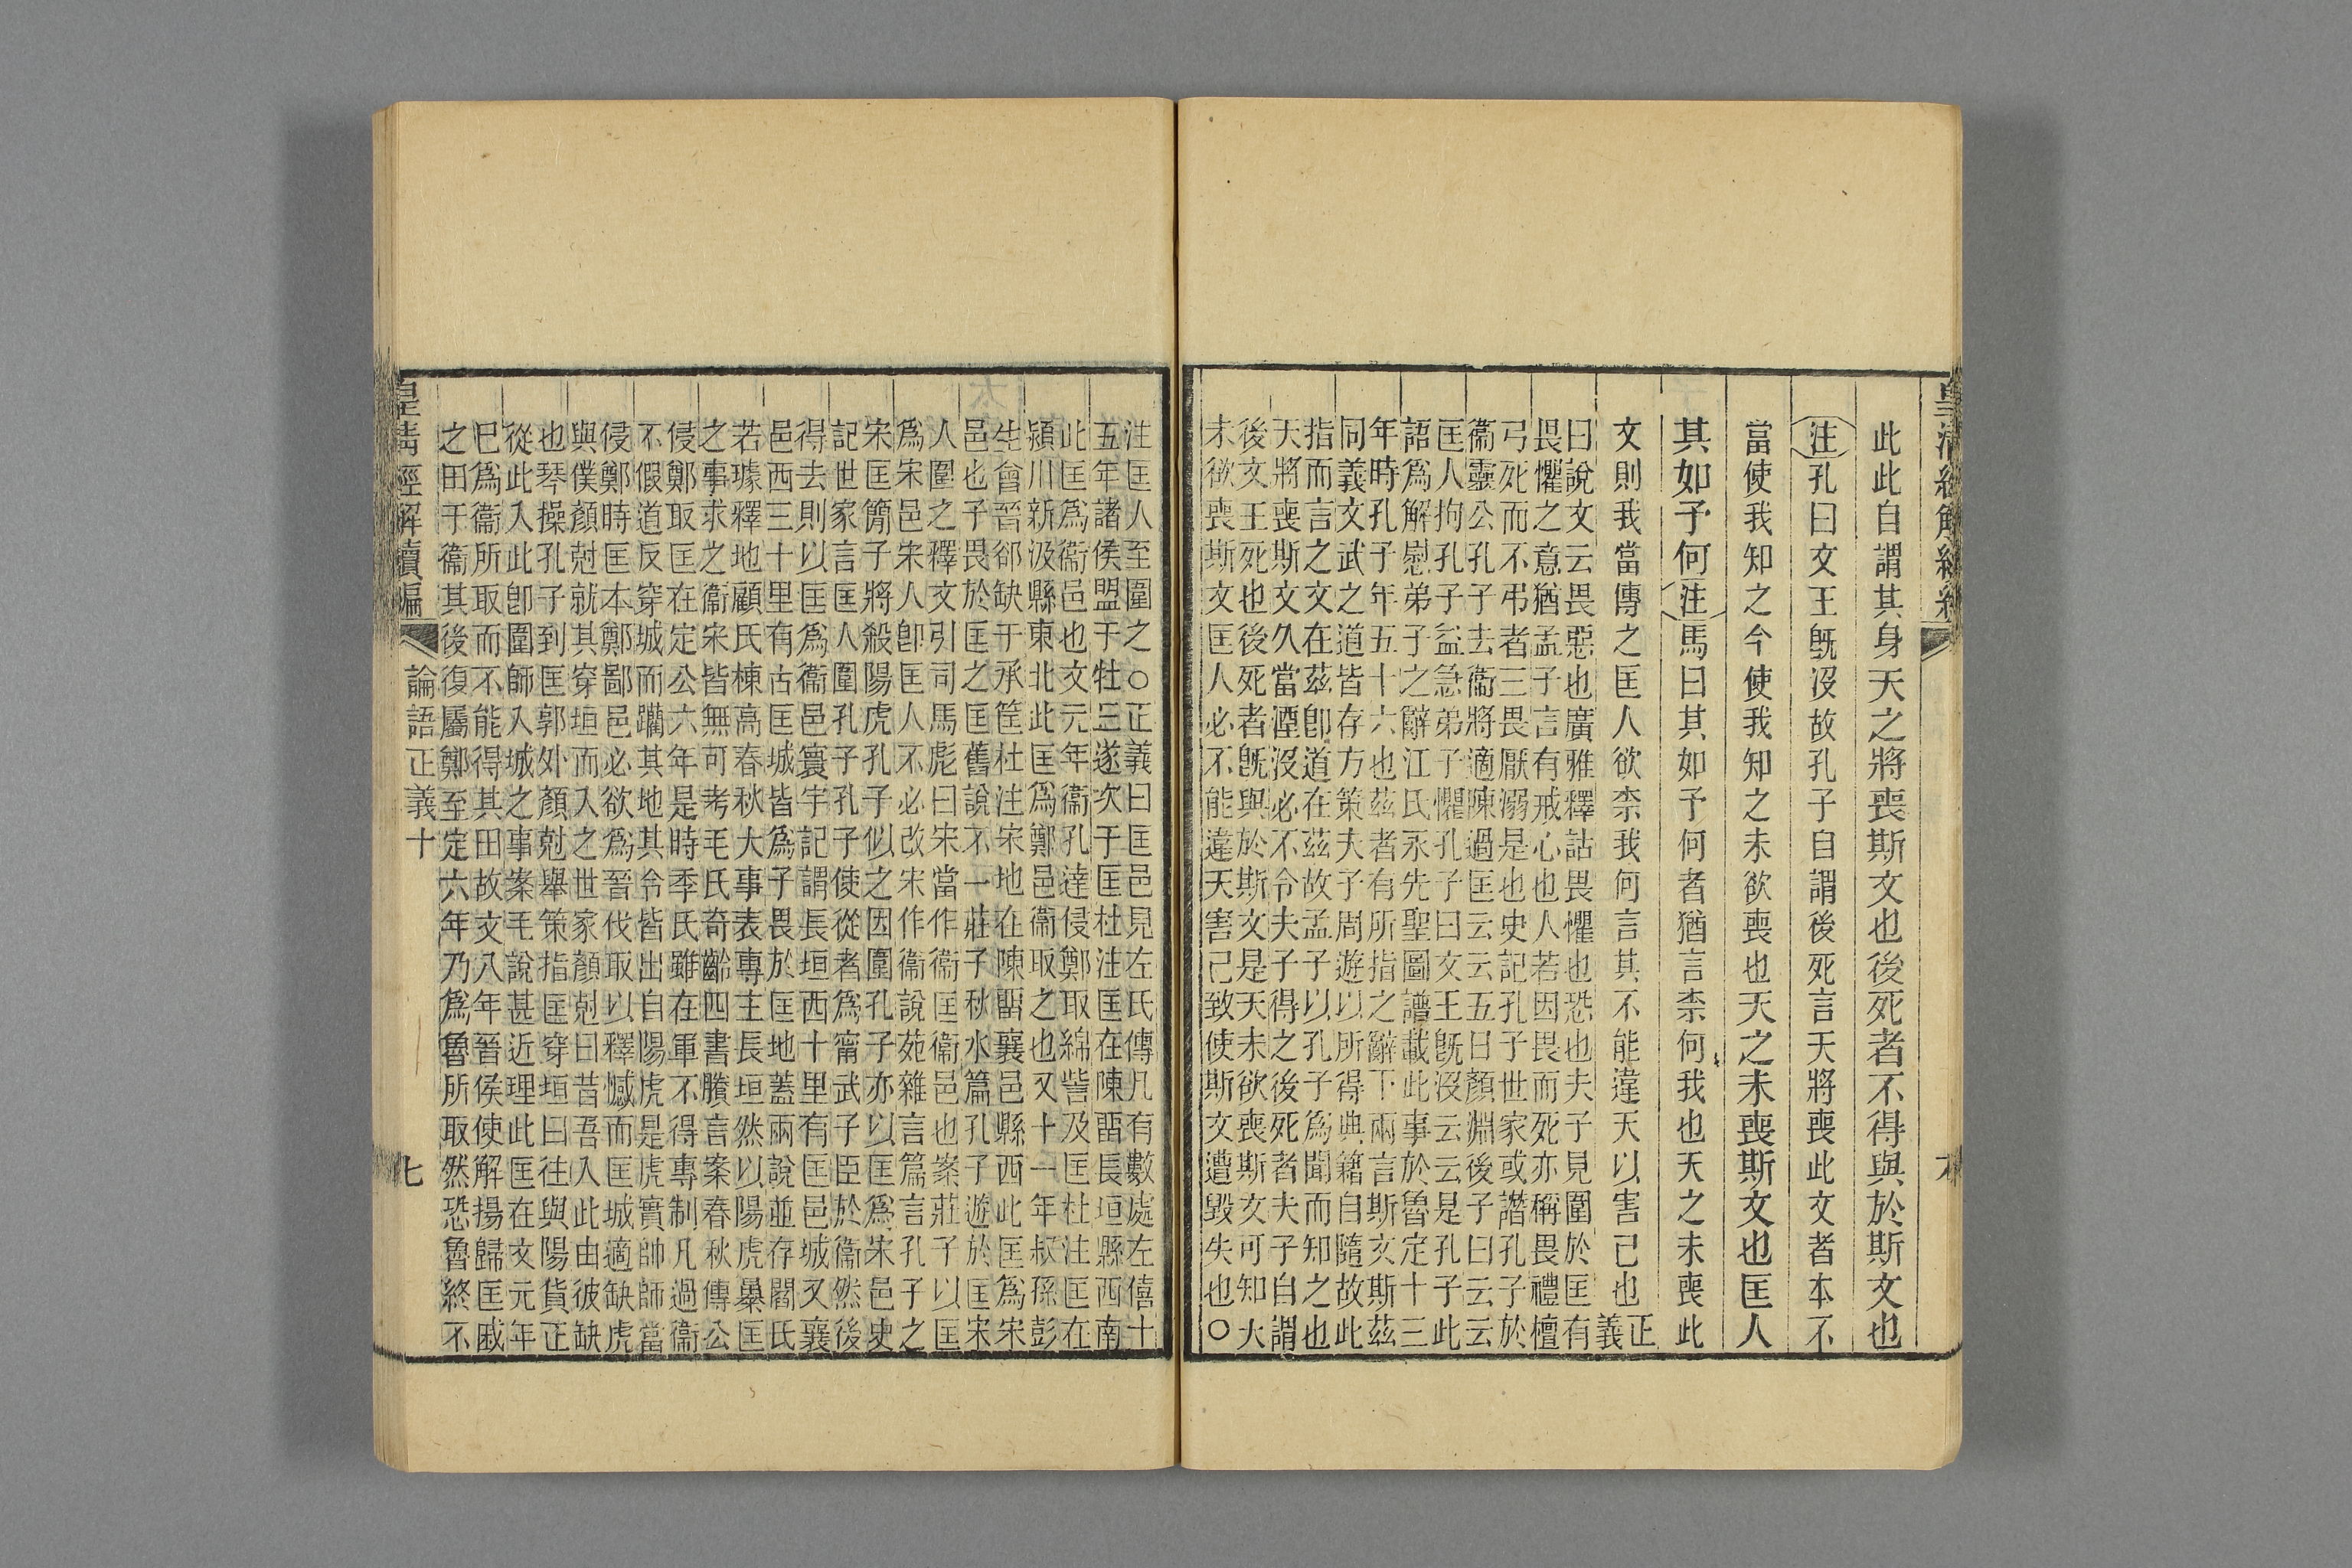 此此自謂其身天之將喪斯文也後死者不得與於斯文也
注孔曰文王旣沒故孔子自謂後死言天將喪此文者本不
當使我知之今使我知之未欲喪也天之未喪斯文也匡人
其如予何注馬曰其如予何者猶言柰何我也天之未喪此
文則我當傳之匡人欲柰我何言其不能違天以害己也正義
曰說文云畏惡也廣雅釋詁畏懼也恐也夫子見圍於匡有
畏懼之意猶孟子言有戒心也人若因畏而死亦稱畏禮檀
弓死而不弔者三畏厭溺是也史記孔子世家或譖孔子於
衞靈公孔子去衞將適陳過匡云云五日顏淵後子曰云云
匡人拘孔子益急弟子懼孔子曰文王旣沒云云是孔子此
語爲解慰弟子之辭江氏永先聖圖譜載此事於魯定十三
年時孔子年五十六也茲者有所指之辭下兩言斯文斯茲
同義文武之道皆存方策夫子周遊以所得典籍自隨故此
指而言之文在茲卽道在茲故孟子以孔子爲聞而知之也
天將喪斯文久當湮沒必不令夫子得之後死者夫子自謂
後文王死也後死者旣與於斯文是天未欲喪斯文可知大
未欲喪斯文匡人必不能違天害己致使斯文遭毀失也○
注匡人至圍之○正義曰匡邑見左氏傳凡有數處左僖十
五年諸侯盟于牡丘遂次于匡杜注匡在陳畱長垣縣西南
此匡爲衞邑也文元年衞孔達侵鄭取綿訾及匡杜注匡在
潁川新汲縣東北此匡爲鄭邑衞取之也又十一年叔孫彭
生會晉郤缺于承筐杜注宋地在陳畱襄邑縣西此匡爲宋
邑也子畏於匡之匡舊說不一莊子秋水篇孔子遊於匡宋
人圍之釋文引司馬彪曰宋當作衞匡衞邑也案莊子以匡
爲宋邑宋人卽匡人不必改宋作衞說苑雜言篇言孔子之
宋匡簡子將殺陽虎孔子似之因圍孔子亦以匡爲宋邑史
記世家言匡人圍孔子孔子使從者爲甯武子臣於衞然後
得去則以匡爲衞邑寰宇記謂長垣西十里有匡邑城又襄
邑西三十里有古匡城皆爲子畏於匡地蓋兩說並存閻氏
若璩釋地顧氏棟高春秋大事表專主長垣然以陽虎㬥匡
之事求之衞宋皆無可考毛氏奇齡四書賸言案春秋傳公
侵鄭取匡在定公六年是時季氏雖在軍不得專制凡過衞
不假道反穿城而躪其地其令皆出自陽虎是虎實帥師當
侵鄭時匡本鄭鄙邑必欲爲晉伐取以釋憾而匡城適缺虎
與僕顏剋就其穿垣而入之世家顏剋曰昔吾入此由彼缺
也琴操孔子到匡郭外顏剋舉策指匡穿垣曰往與陽貨正
從此入此卽圍師入城之事案毛說甚近理此匡在文元年
已爲衞所取而不能得其田故文八年晉侯使解揚歸匡戚
之田于衞其後復屬鄭至定六年乃爲魯所取然恐魯終不
皇清經解續編 論語正義十 七